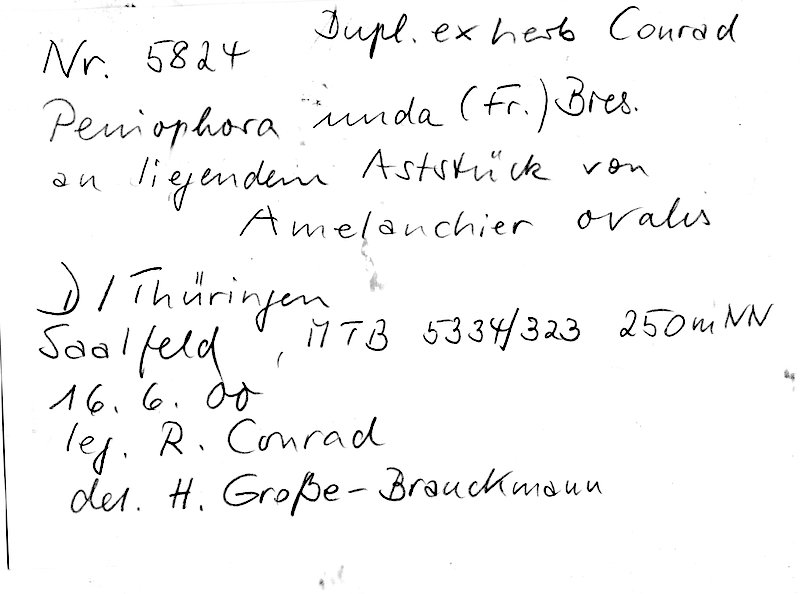 Dupl. ex herb Conrad
Nr. 5824
Peniophora nuda (Fr.) Bres.
an liegendem Aststück von
Amelanchier ovalis
D / Thüringen
Saalfeld, MTB 5334/323 250mNN
16. 6. 00
leg. R. Conrad
det. H. Große-Brauckmann